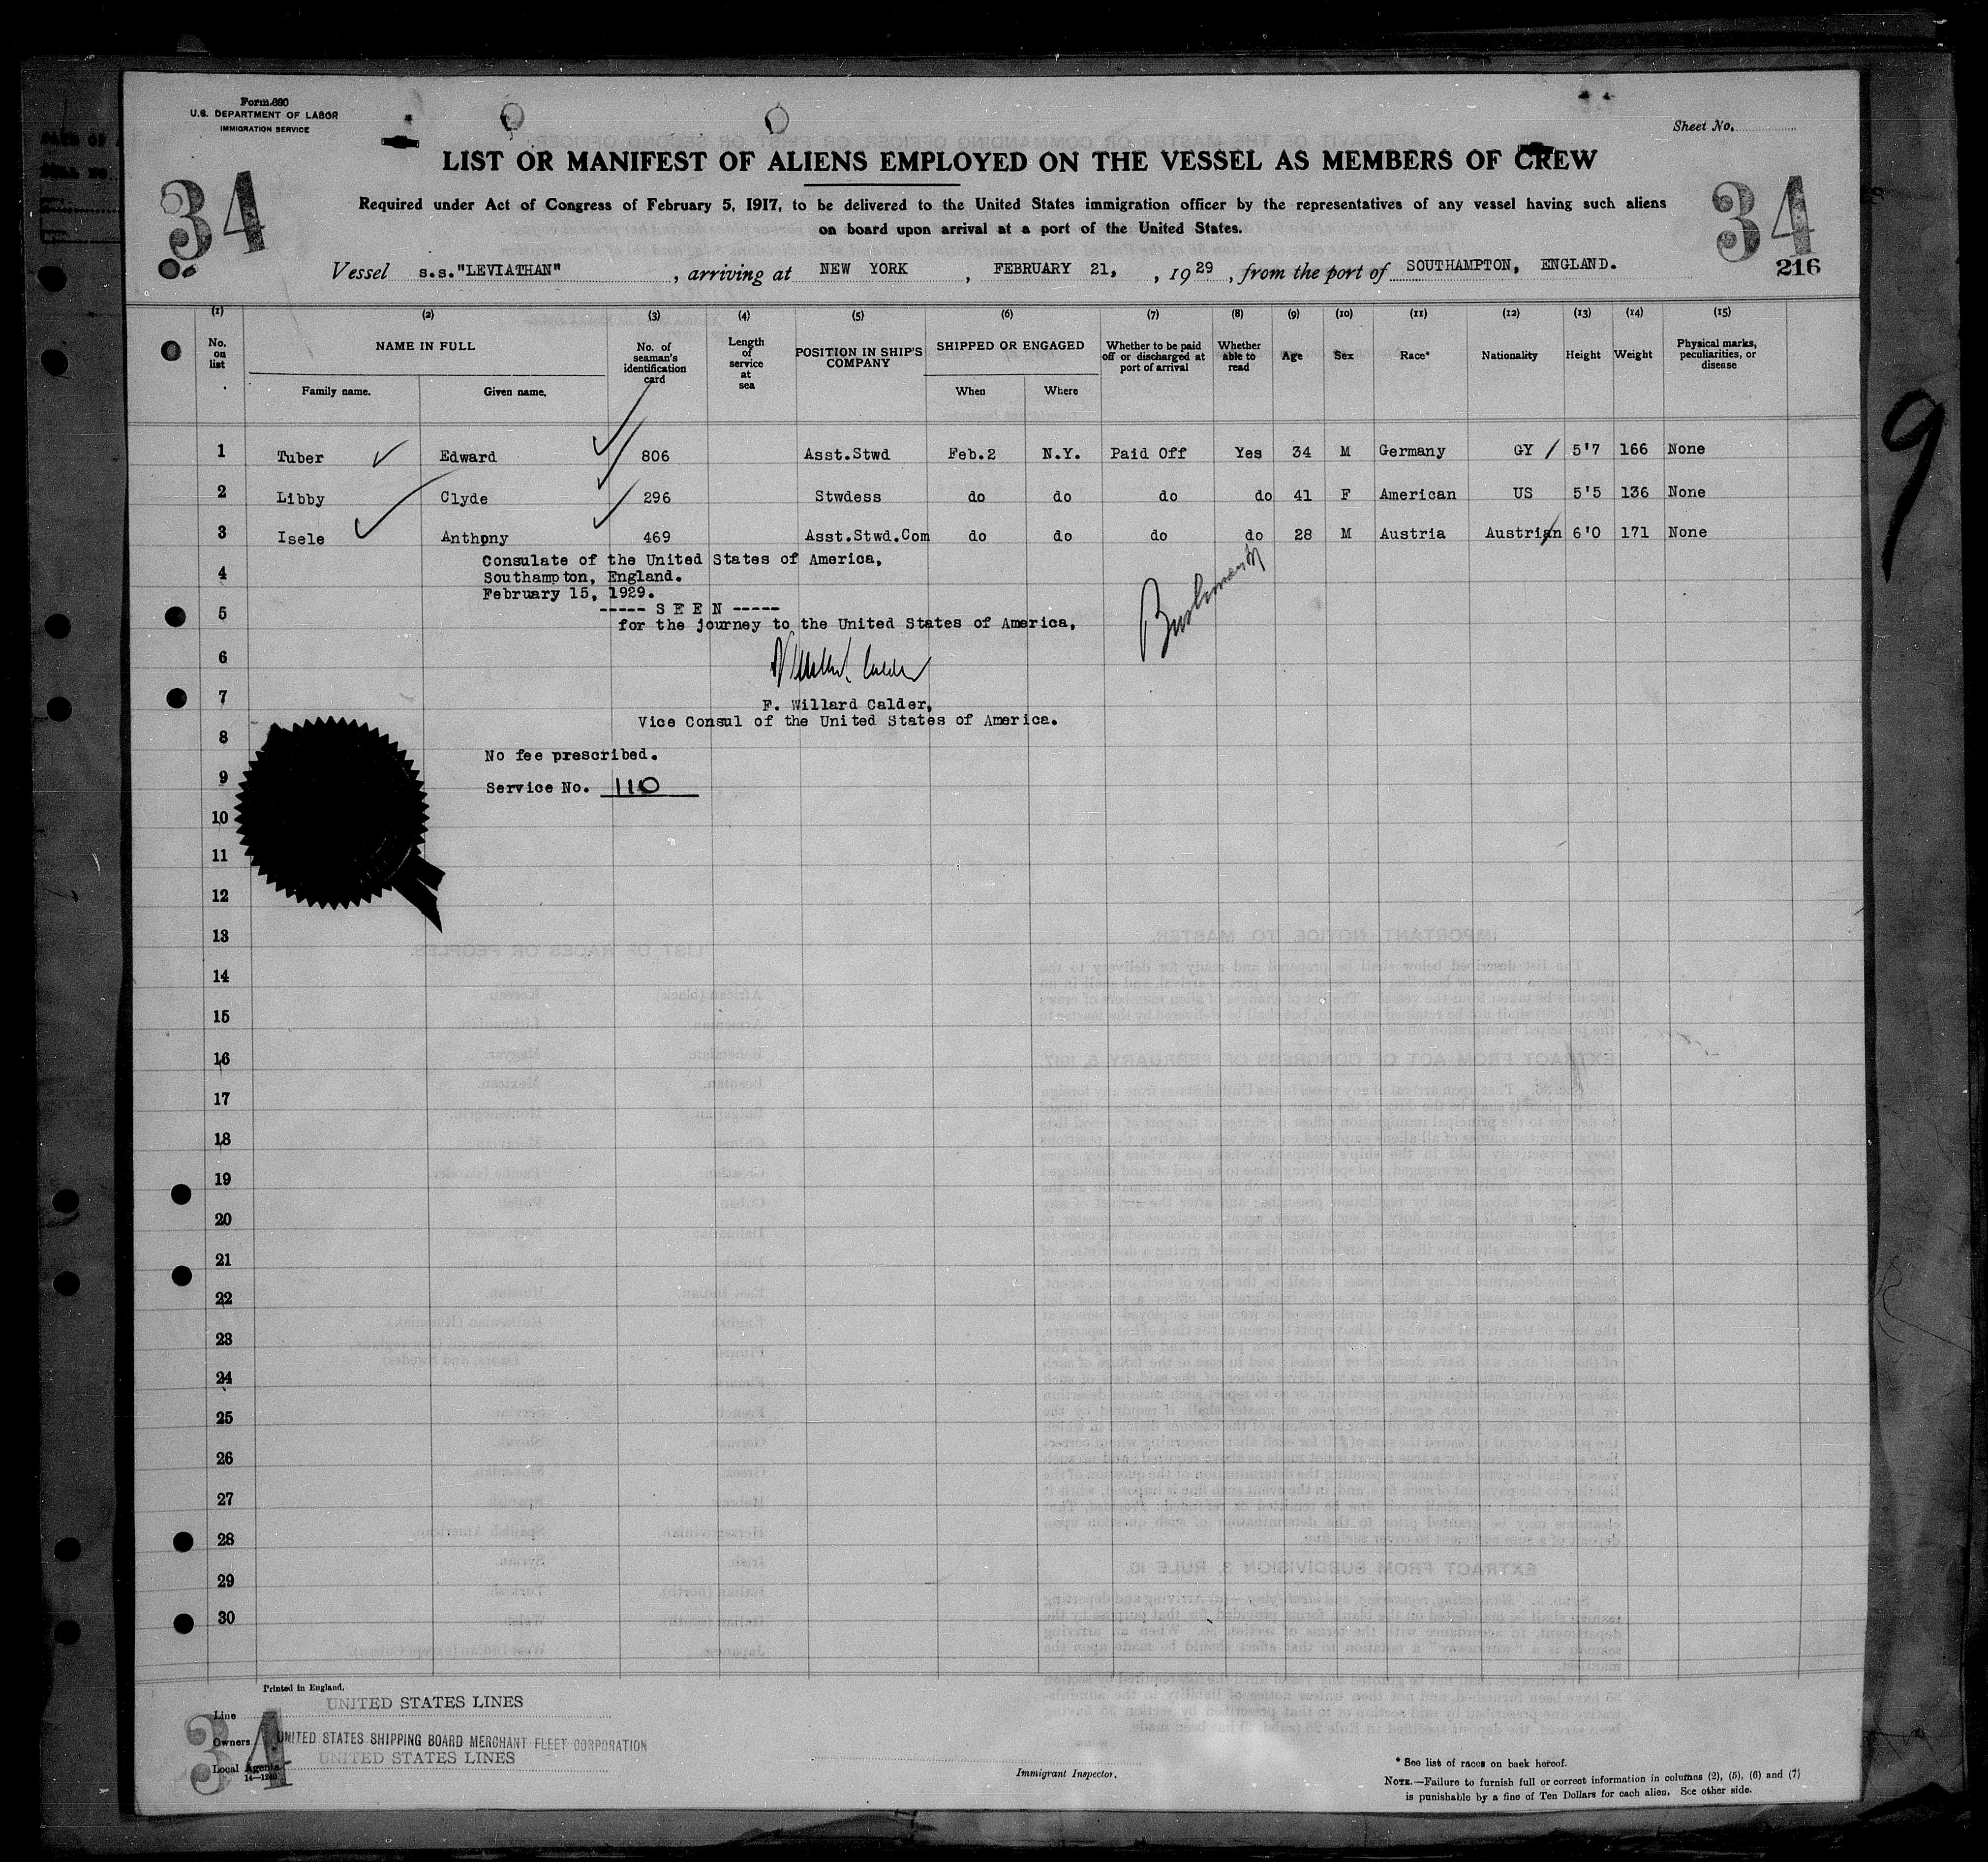 Form 680
U.S. DEPARTMENT OF LABOR
IMMIGRATION SERVICE
Sheet No.
LIST OR MANIFEST OF ALIENS EMPLOYED ON THE VESSEL AS MEMBERS OF CREW
34
34
Required under Act of Congress of February 5, 1917, to be delivered to the United States immigration officer by the representatives of any vessel having such aliens
on board upon arrival at a port of the United States.
216
Vessel s.s."LEVIATHAN", arriving at NEW YORK, FEBRUARY 21, , 1929, from the port of SOUTHAMPTON, ENGLAND.
(1) (2) (3) (4) (5) (6) (7) (8) (9) (10) (11) (12) (13) (14) (15)
No. on list
NAME IN FULL
Family name. Given name.
No. of seaman's identification card
Length of service at sea
POSITION IN SHIP'S COMPANY
SHIPPED OR ENGAGED
When Where
Whether to be paid off or discharged at port of arrival
Whether able to read
Age
Sex
Race*
Nationality
Height
Weight
Physical marks, peculiarities, or disease
9
1 Tuber Edward 806 Asst.Stwd Feb.2 N.Y. Paid Off Yes 34 M Germany GY 5'7 166 None
2 Libby Clyde 296 Stwdess do do do do 41 F American US 5'5 136 None
3 Isele Anthony 469 Asst.Stwd.Com do do do do 28 M Austria Austrian 6'0 171 None
Consulate of the United States of America,
4
Southampton, England.
February 15, 1929.
----- S E E N -----
5
for the journey to the United States of America,
6
7
F. Willard Calder,
Vice Consul of the United States of America.
8
No fee prescribed.
9
Service No. 110
10
11
12
13
14
15
16
17
18
19
20
21
22
23
24
25
26
27
28
29
30
Printed in England.
Line UNITED STATES LINES
Owners UNITED STATES SHIPPING BOARD MERCHANT FLEET CORPORATION
Local Agents UNITED STATES LINES
14—1240
34
Immigrant Inspector.
* See list of races on back hereof.
NOTE.—Failure to furnish full or correct information in columns (2), (5), (6) and (7)
is punishable by a fine of Ten Dollars for each alien. See other side.